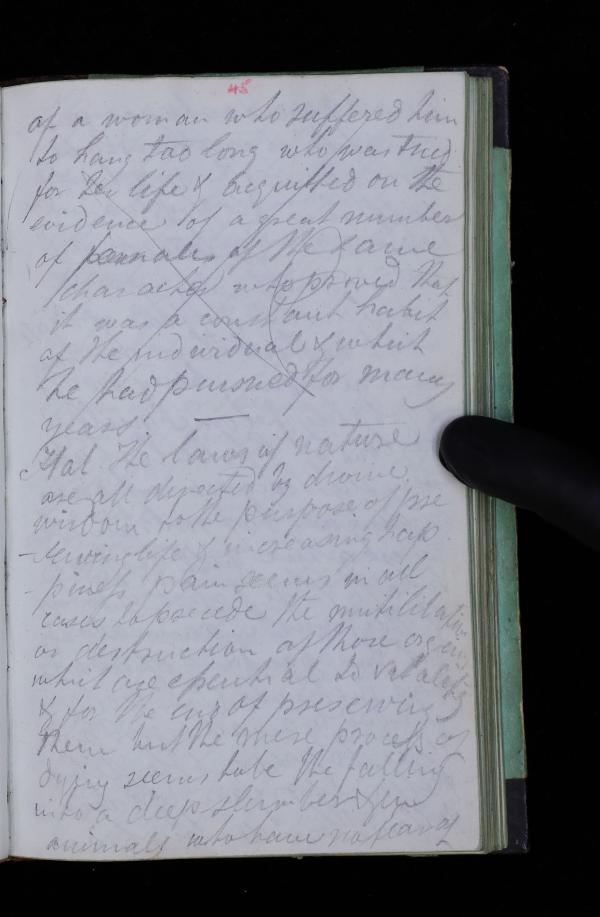 45
of a woman who suffered him
to hang too long who was tried
for her life & acquitted on the
evidence of a great number
of females of the same
character who proved that
it was a constant habit
of the individual & which
he had pursued for many
years.
Hal The laws of nature
are all directed by divine
wisdom to the purpose of pre
-serving life & increasing hap
-piness pain seems in all
cases to precede the mutilation
or destruction of those organs
which are essential to vitality
& for the end of preserving
them but the mere process of
dying seems to be the falling
into a deep slumber &
animals who have no fear of